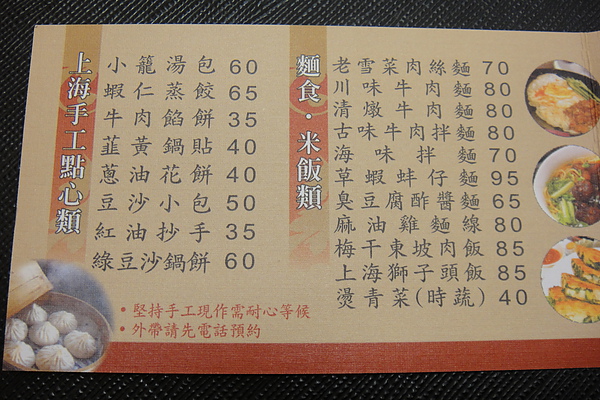 上海手工點心類
小籠湯包 60
蝦仁蒸餃 65
牛肉餡餅 35
韮黃鍋貼 40
蔥油花餅 40
豆沙小包 50
紅油抄手 35
綠豆沙鍋餅 60
•堅持手工現作需耐心等候
•外帶請先電話預約
麵食·米飯類
老雪菜肉絲麵 70
川味牛肉麵 80
清燉牛肉麵 80
古味牛肉拌麵 80
海味拌麵 70
草蝦蚌仔麵 95
臭豆腐酢醬麵 65
麻油雞麵線 80
梅干東坡肉飯 85
上海獅子頭飯 85
燙青菜(時蔬) 40